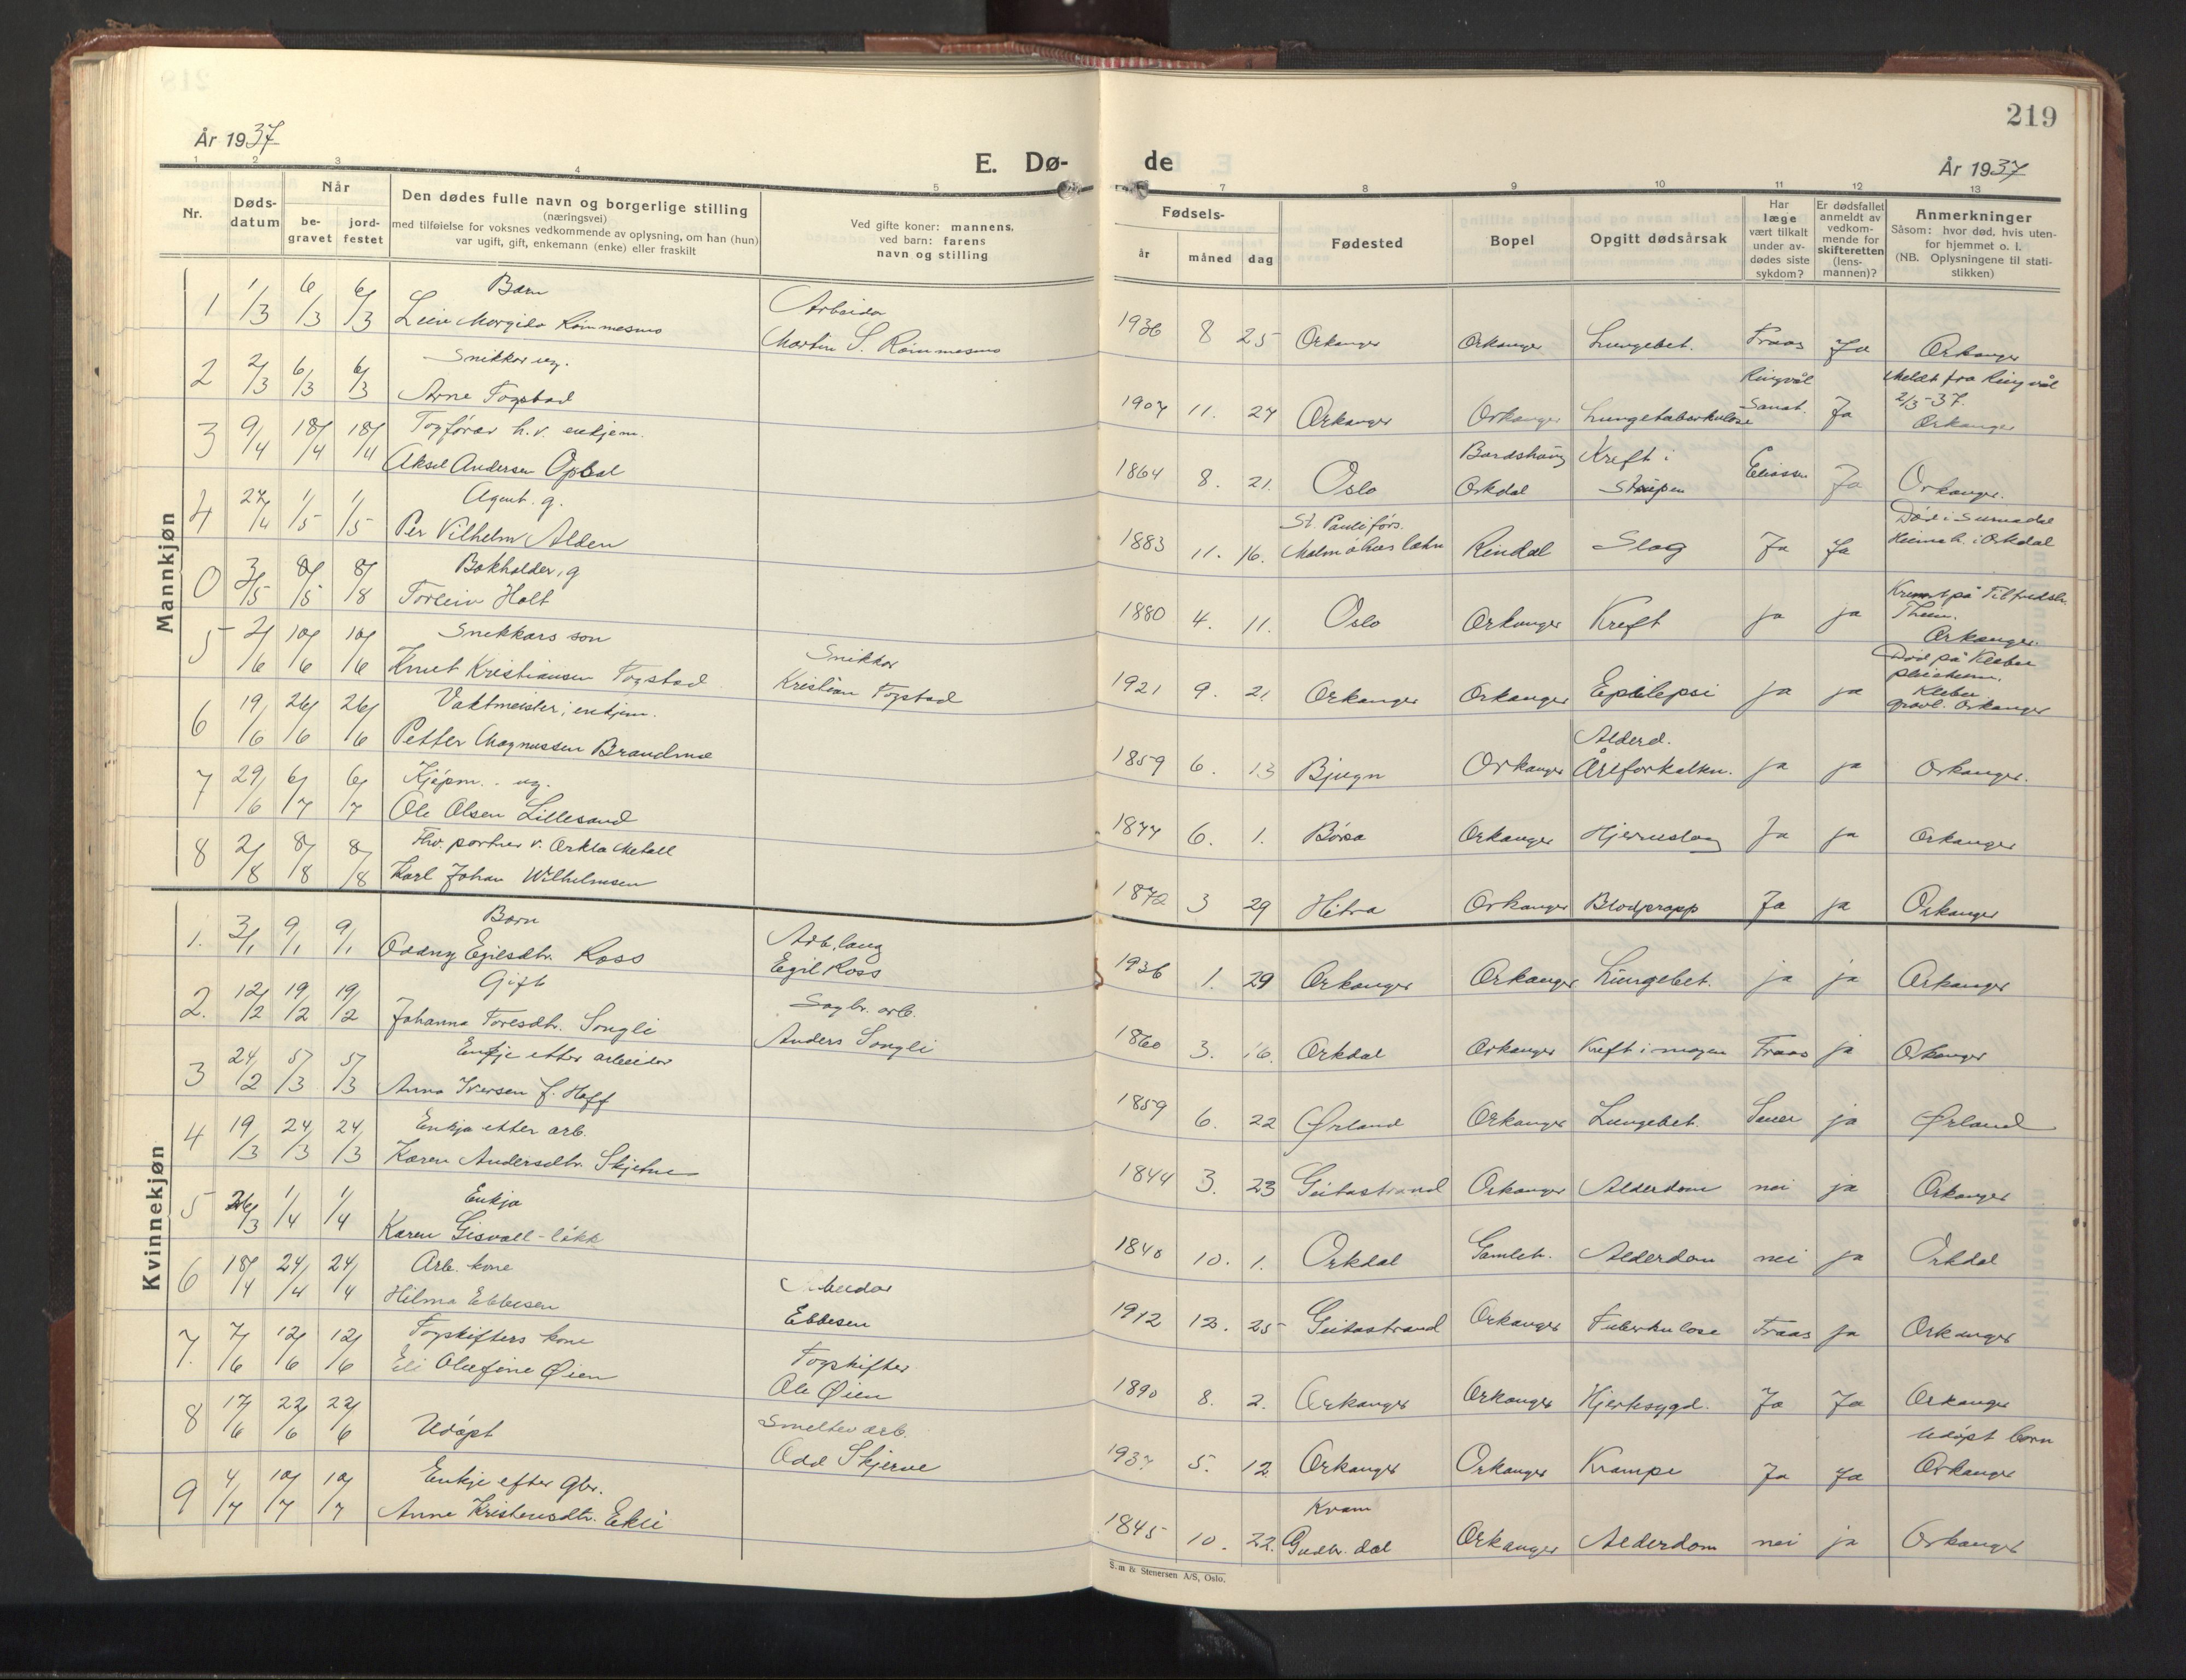 219
År 1937
E. Dø-
de
År 1937
1 2 3 4 5
7 8 9 10 11 12 13
Nr.
Døds-
datum
Når
be-
gravet
jord-
festet
Den dødes fulle navn og borgerlige stilling
(næringsvei)
med tilføielse for voksnes vedkommende av oplysning, om han (hun)
var ugift, gift, enkemann (enke) eller fraskilt
Ved gifte koner: mannens,
ved barn: farens
navn og stilling
Fødsels-
år måned dag
Fødested
Bopel
Opgitt dødsårsak
Har
læge
vært tilkalt
under av-
dødes siste
sykdom?
Er dødsfallet
anmeldt av
vedkom-
mende for
skifteretten
(lens-
mannen)?
Anmerkninger
Såsom: hvor død, hvis uten-
for hjemmet o. l.
(NB. Oplysningene til stati-
stikken)
Mannkjøn
1 1/3 6/3 6/3 Barn Arbeider
Martin S. Rømmesmo
1936 8 25 Orkanger Orkanger Lungebet. Fraas Ja Orkanger
2 2/3 6/3 6/3 Snikkar ug.
Arne Fogstad
1907 11. 27 Orkanger Orkanger Lungetuberkulose Ringvål Sanat. Ja Meldt fra Ringvål
2/3-37.
Orkanger
3 9/4 18/4 18/4 Togfører h.v. enkjem.
Aksel Andersen Opdal
1864 8. 21. Oslo Bårdshaug
Orkdal Kreft i
Strupen Eliassen Ja Orkanger.
4 27/4 1/5 1/5 Agent. g.
Per Vilhelm Alden
1883 11. 16. St. Pauli førs.
Malmøhus læhn Rindal Slag Ja Ja Død i Surnadal
Heimeh. i Orkdal
0 3/5 8/5 8/8 Bokholder, g
Torleiv Holt
1880 4. 11. Oslo Orkanger Kreft ja ja på Tilfredsh.
Orkanger.
5 2/6 10/6 10/6 Snikkars son
Knut Kristiansen Fogstad
Snikkar
Kristian Fogstad
1921 9. 21. Orkanger Orkanger Epilepsi ja ja Død på Klæbu
pleieheim.
Klæbu
gravl. Orkanger
6 19/6 26/6 26/6 Vaktmeister, enkjem.
Petter Magnussen Brandmo
1859 6. 13 Bjugn Orkanger Alderd.
Åreforkalkn. ja ja Orkanger.
7 29/6 6/7 6/7 Kjøpm. ug.
Ole Olsen Lillesand
1877 6. 1. Børsa Orkanger Hjerneslag Ja ja Orkanger
8 2/8 8/8 8/8 Fhv. portner v. Orkla Metall
Karl Johan Wilhelmsen
1872 3 29 Hitra Orkanger Blodpropp Ja ja Orkanger
Kvinnekjøn
1. 3/1 9/1 9/1 Barn
Oddny Egilsdtr. Ross
Arb.
Egil Ross
1936 1. 29 Orkanger Orkanger Lungebet. ja ja Orkanger
2. 12/2 19/2 19/2 Gift
Johanna Toresdtr. Songli
Sagbr. arb.
Anders Songli
1860 3. 16. Orkdal Orkanger Kreft i magen Fraas ja Orkanger
3 24/2 5/3 5/3 Enkje etter arbeider
Anna Iversen f. Hoff
1859 6. 22 Ørland Orkanger Lungebet. ja Ørland
4 19/3 24/3 24/3 Enkja etter arb.
Karen Andersdtr. Skjetne
1844 3. 23 Geitastrand Orkanger Alderdom nei ja Orkanger
5 26/3 1/4 1/4 Enkja
Karen Gisvall-løkk
1840 10. 1. Orkdal Gamleh. Alderdom nei ja Orkdal
6 18/4 24/4 24/4 Arb. kone
Hilma Ebbesen
Arbeidar
Ebbesen
1912 12. 25 Geitastrand Orkanger Tuberkulose Fraas ja Orkanger
7. 7/6 12/6 12/6 Togskifters kone
Eli Olufine Øien
Togskifter
Ole Øien
1890 8. 2. Orkanger Orkanger Hjertesygd. Ja Ja Orkanger
8 17/6 22/6 22/6 Udøpt
Smeltev arb.
Odd Skjerve
1937 5. 12 Orkanger Orkanger Krampe Ja Ja Udøpt barn
Orkanger
9 4/7 10/7 10/7 Enkje efter gbr.
Anne Kristensdtr. Ekli
1845 10. 22. Kvam
Gudbr. dal Orkanger Alderdom nei ja Orkanger
S.m & Stenersen A/S, Oslo.